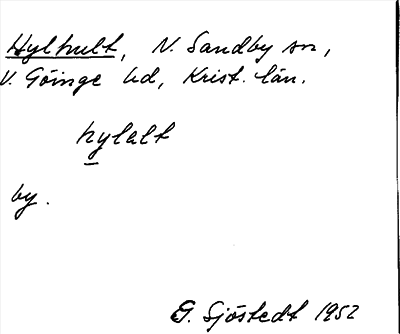 Hylhult, N. Sandby sn,
V. Göinge hd, Krist. län.
hylalt
by.
G. Sjöstedt 1952